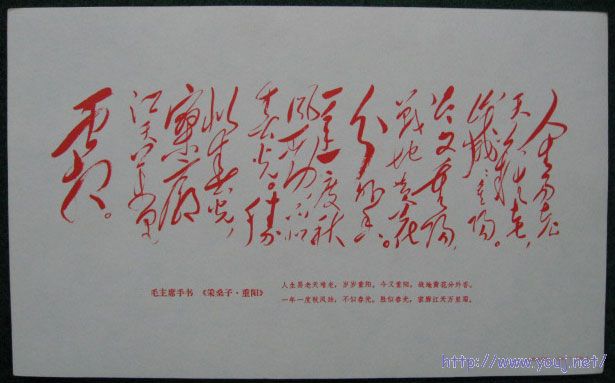 人生易老
天难老，
岁岁重阳。
今又重阳，
战地黄花
分外香。
一年一度秋
风劲，不似
春光。胜
似春光，
寥廓
江天万里
霜。
毛主席手书 《采桑子·重阳》
人生易老天难老，岁岁重阳。今又重阳，战地黄花分外香。
一年一度秋风劲，不似春光。胜似春光，寥廓江天万里霜。
http://www.youj.net/